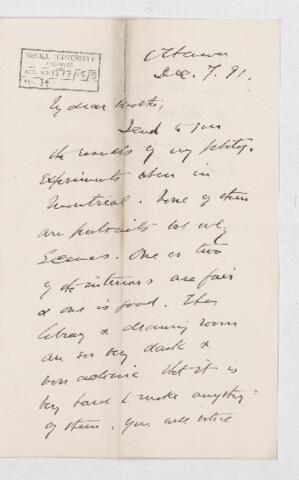 McGILL UNIVERSITY
ARCHIVES
ACC. NO. 1577/
REF. 34
Ottawa
Dec. 7. 91.
My dear Mother,
I send to you
the results of my photog.
experiments when in
Montreal. None of them
are portraits but only
Scenes. One or two
of the interiors are fair
& one is good. The
library & drawing room
are so very dark &
non actinic that it is
very hard to make anything
of them. You will notice